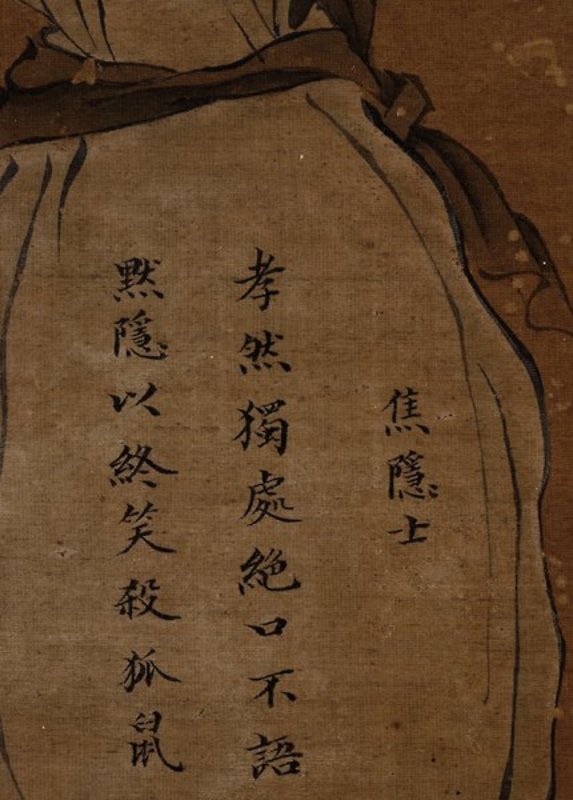 焦隱士
孝然獨處絶口不語
默隱以終笑殺狐鼠